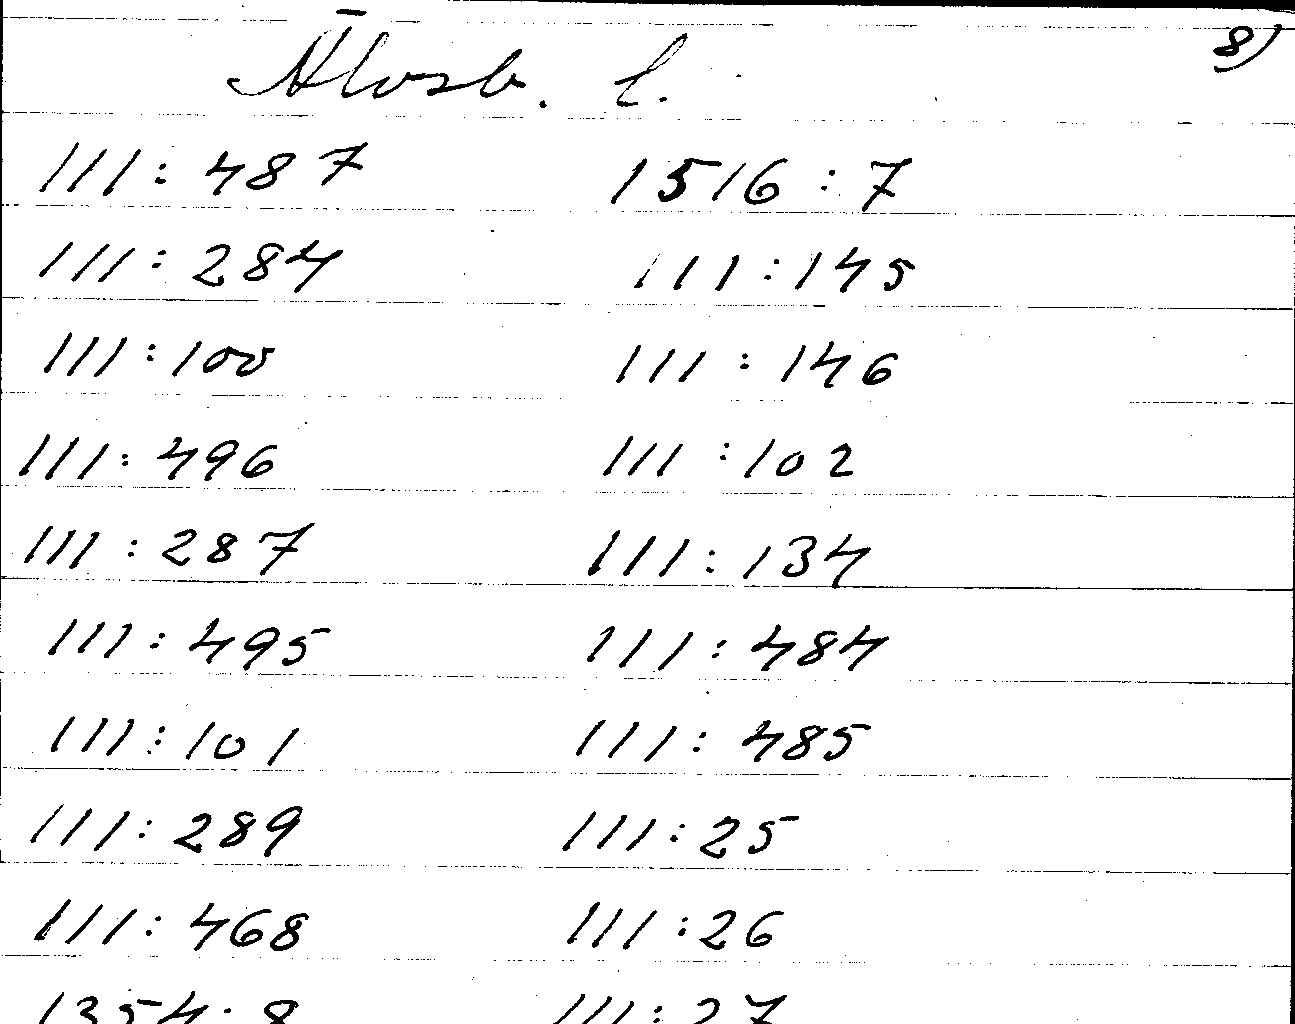 8)
Älvsb. l.
111:487 1516:7
111:284 111:145
111:100 111:146
111:496 111:102
111:287 111:134
111:495 111:484
111:101 111:485
111:289 111:25
111:468 111:26
1354:8 111:27